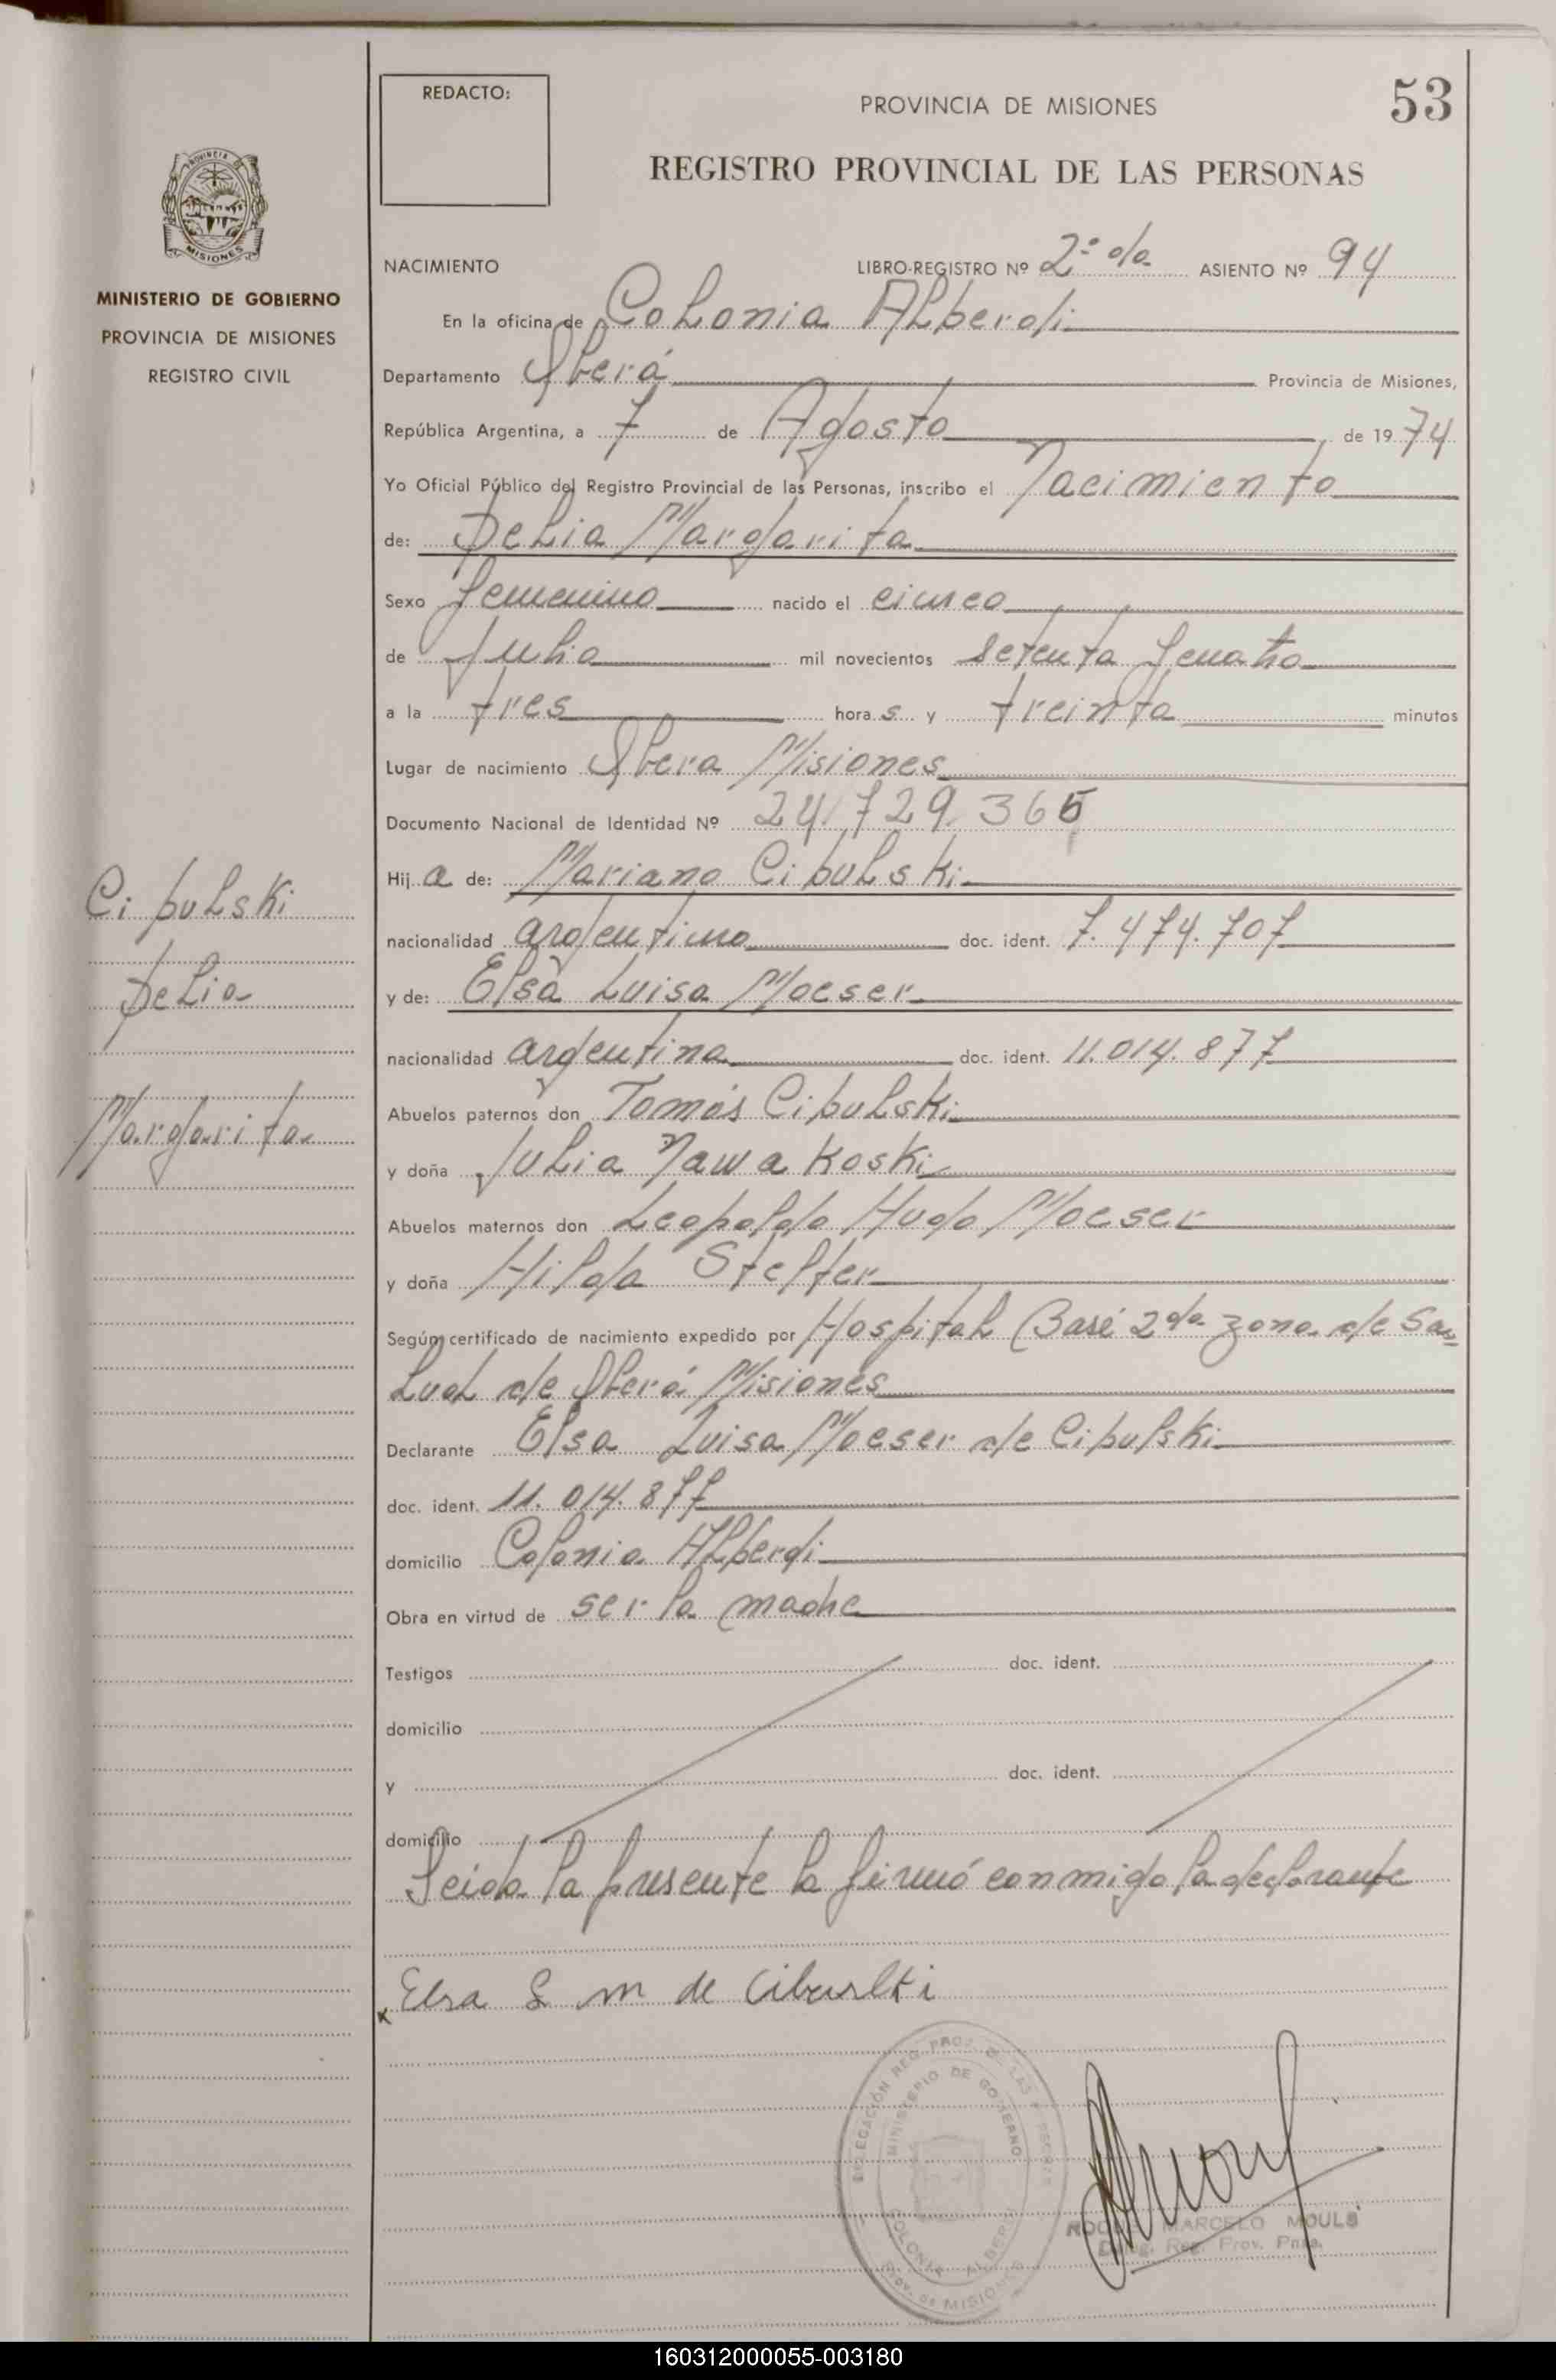 REDACTO:
PROVINCIA DE MISIONES
53
REGISTRO PROVINCIAL DE LAS PERSONAS
PROVINCIA DE
MISIONES
MINISTERIO DE GOBIERNO
PROVINCIA DE MISIONES
REGISTRO CIVIL
NACIMIENTO LIBRO-REGISTRO Nº 2º d/a ASIENTO Nº 94
En la oficina de Colonia Alberdi
Departamento Oberá Provincia de Misiones,
República Argentina, a 7 de Agosto de 1974
Yo Oficial Público del Registro Provincial de las Personas, inscribo el Nacimiento
de: Delia Margarita
Sexo femenino nacido el cinco
de Julio mil novecientos setenta y cuatro
a la tres hora s y treinta minutos
Lugar de nacimiento Obera Misiones
Documento Nacional de Identidad Nº 24.729.365
Hij a de: Mariano Cibulski
nacionalidad argentino doc. ident. 7.474.707
y de: Elsa Luisa Moeser
nacionalidad argentina doc. ident. 11.014.877
Abuelos paternos don Tomás Cibulski
y doña Julia Nawakoski
Abuelos maternos don Leopoldo Hugo Moeser
y doña Hilda Stelter
Según certificado de nacimiento expedido por Hospital Base 2da zona de Sa=
lud de Oberá Misiones
Declarante Elsa Luisa Moeser de Cibulski
doc. ident. 11.014.877
domicilio Colonia Alberdi
Obra en virtud de ser la madre
Testigos doc. ident.
domicilio
y doc. ident.
domicilio
Leida la presente la firmó conmigo la declarante
x Elsa L m de Cibulski
Cibulski
Delia
Margarita
DELEGACIÓN REG. PROV. DE LAS PERSONAS
MINISTERIO DE GOBIERNO
COLONIA ALBERDI
Prov. de MISIONES
ROQUE MARCELO MOULS
Deleg. Reg. Prov. Pnas.
160312000055-003180